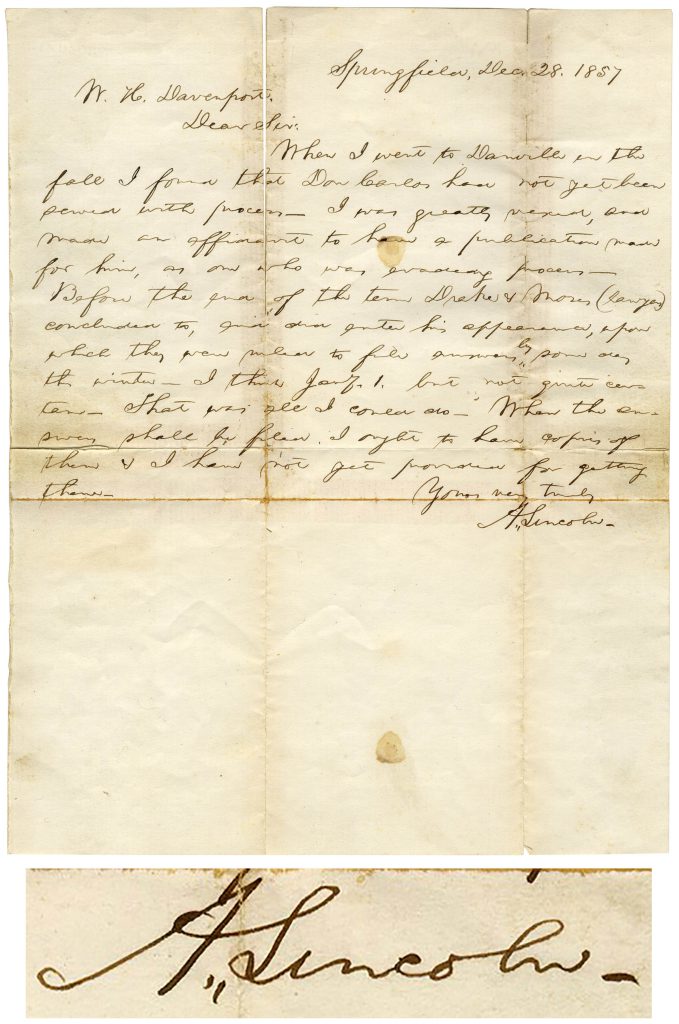 Springfield, Dec. 28. 1857
W. H. Davenport.
Dear Sir:
When I went to Danville in the
fall I found that Don Carlos had not yet been
served with process— I was greatly vexed, and
made an affidavit to have a publication made
for him, as one who was evading process—
Before the end, of the term Drake & Moses (lawyers)
concluded to, and did enter his appearance, upon
which they were ruled to file answers by some day
this winter— I think Jany. 1. but not quite cer-
tain— That was all I could do— When the an-
swers shall be filed, I ought to have copies of
them & I have not yet provided for getting
them—
Yours very truly
A. Lincoln—
A. Lincoln—